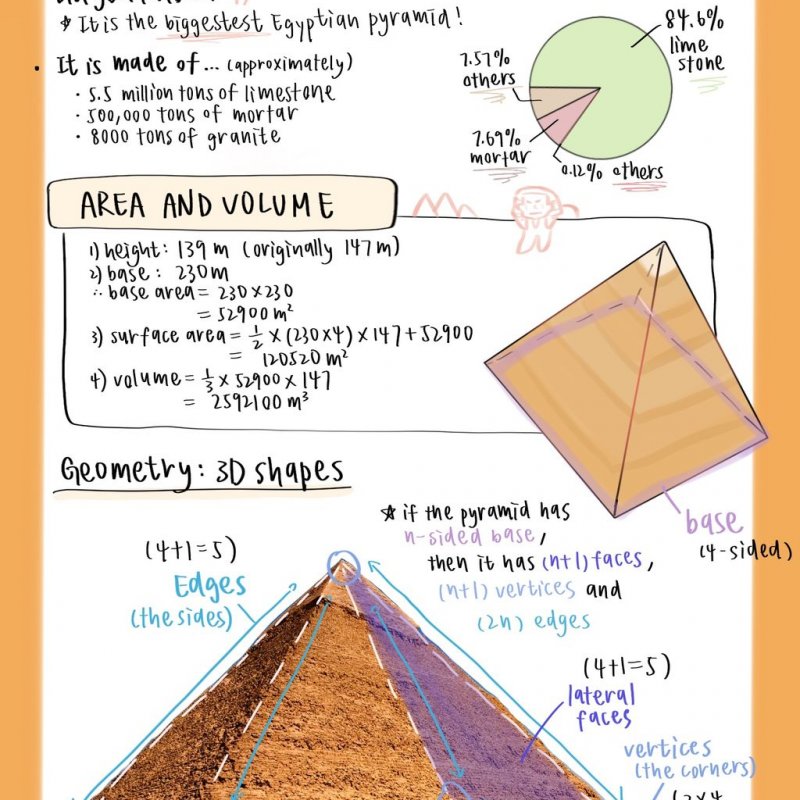 * It is the biggestest Egyptian pyramid!
• It is made of... (approximately)
• 5.5 million tons of limestone
• 500,000 tons of mortar
• 8000 tons of granite
84.6%
lime
stone
7.57%
others
7.69%
mortar
0.12% others
AREA AND VOLUME
1) height: 139 m (originally 147 m)
2) base: 230m
∴ base area = 230 × 230
= 52900 m²
3) surface area = ½ × (230×4) × 147 + 52900
= 120520 m²
4) volume = ⅓ × 52900 × 147
= 2592100 m³
Geometry: 3D shapes
base
(4-sided)
* if the pyramid has
n-sided base,
then it has (n+1) faces,
(n+1) vertices and
(2n) edges
(4+1=5)
Edges
(the sides)
(4+1=5)
lateral
faces
vertices
(the corners)